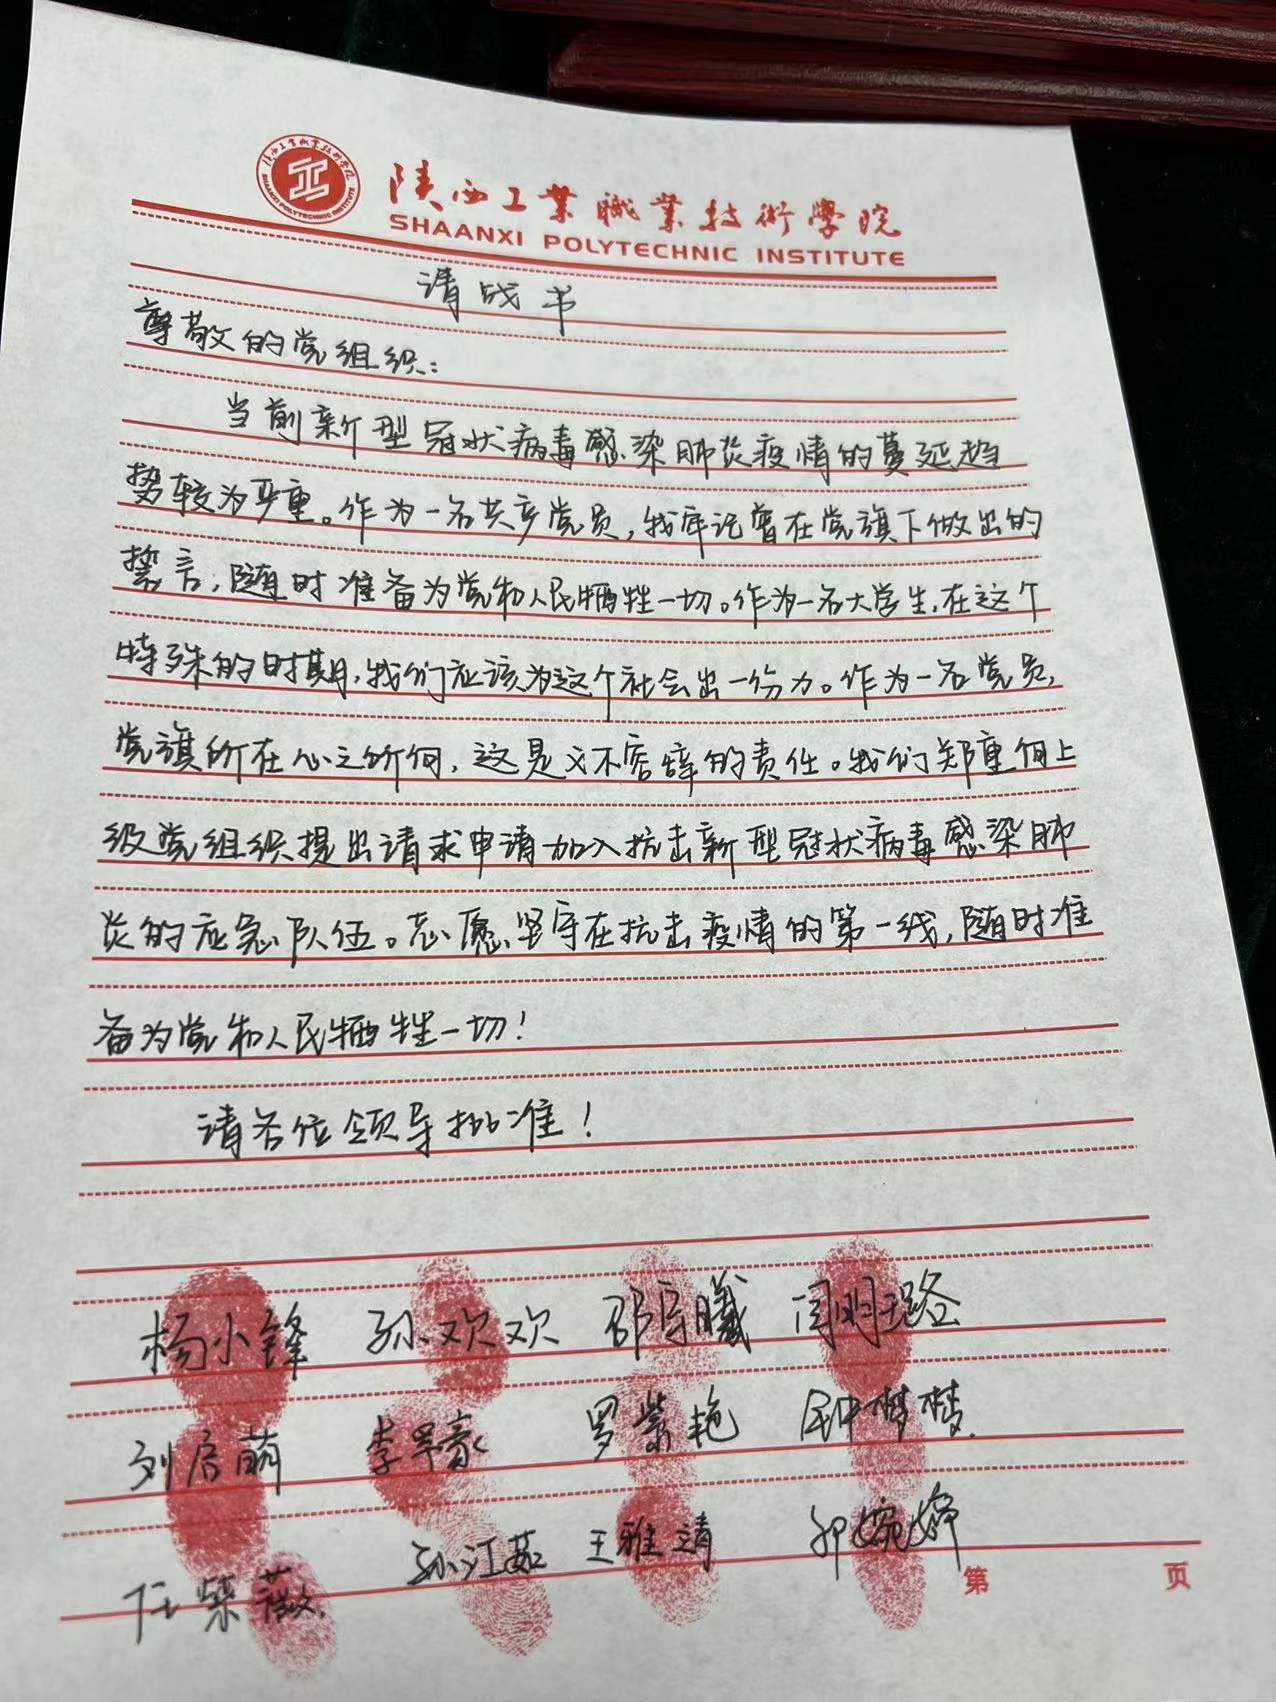 陕西工业职业技术学院
SHAANXI POLYTECHNIC INSTITUTE
请战书
尊敬的党组织:
当前新型冠状病毒感染肺炎疫情的蔓延趋
势较为严重。作为一名共产党员,我牢记曾在党旗下做出的
誓言,随时准备为党和人民牺牲一切。作为一名大学生,在这个
特殊的时期,我们应该为这个社会出一份力。作为一名党员,
党旗所在心之所向,这是义不容辞的责任。我们郑重向上
级党组织提出请求申请加入抗击新型冠状病毒感染肺
炎的应急队伍。志愿坚守在抗击疫情的第一线,随时准
备为党和人民牺牲一切!
请各位领导批准!
杨小锋 孙欢欢 邵宗曦 闫明璐
刘启萌 李罗豪 罗紫艳 钟梦梦
任紫薇 孙江茹 王雅靖 郭婉婷
第 页